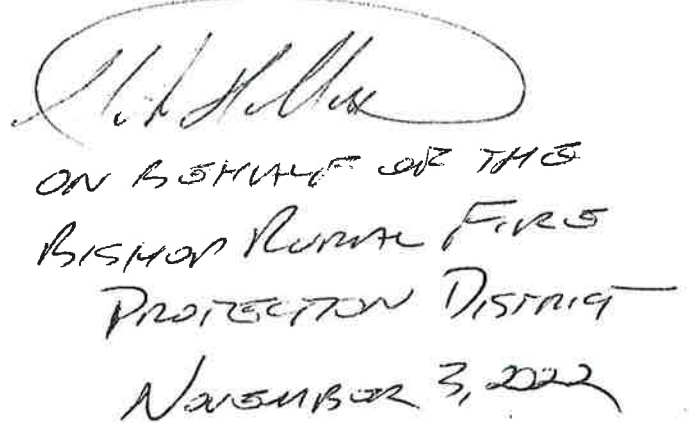 ON BEHALF OF THE
BISHOP RURAL FIRE
PROTECTION DISTRICT
NOVEMBER 3, 2022